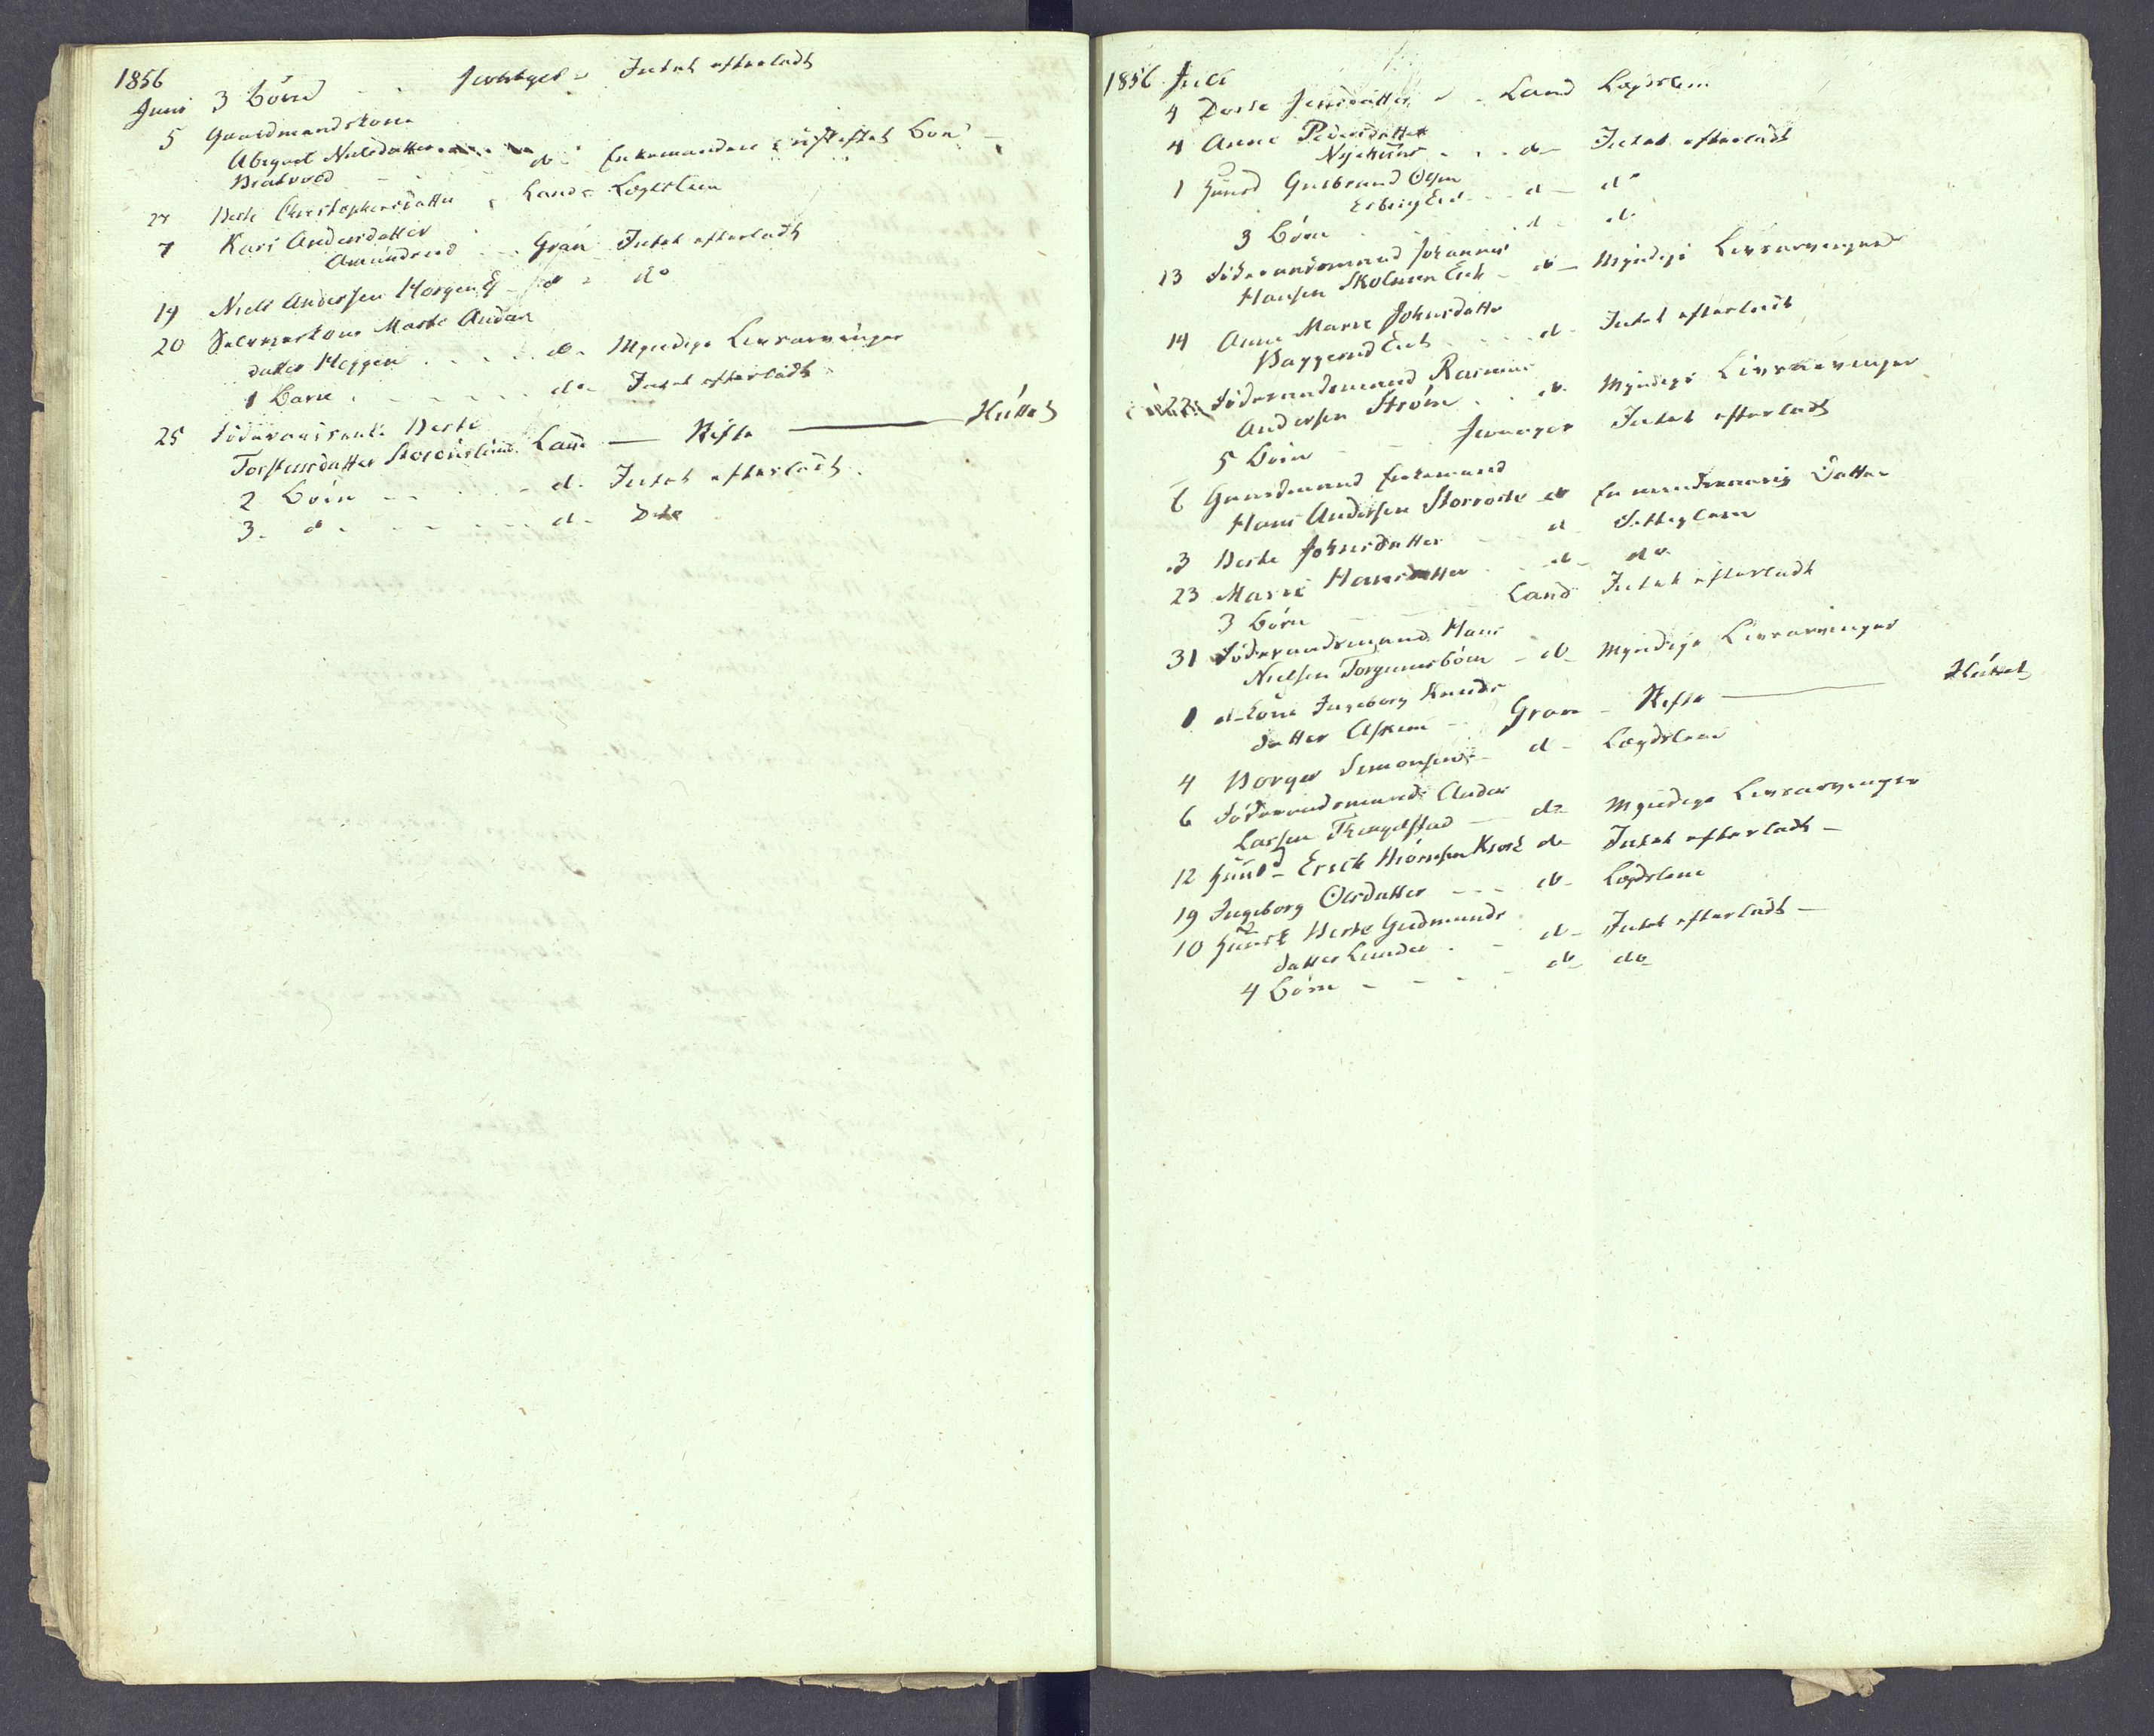 1856
Juni 3 Börn - - Jevnager - Intet efterladt
5 Gaardmandskone
Abigael Nielsdatter
do Enkemanden i uskiftet Boe
27 Berte Christophersdatter Land - Lægdslem
7 Kari Andersdatter
Amundrud - - Gran Intet efterladt
19 Niels Andersen Morgen - d - do
20 Selveierkone Marte Anders
datter Heggen - - - do - Myndige Livsarvinger
1 Barn - - - - do - Intet efterladt
25 Föderaadsenke Berte
Torstensdatter Land — Skifte — Sluttet
2 Börn - - - - d - Intet efterladt
3 d - - - - d - Dto
1856 Juli
4 Dorte Jensdatter - - Land Lægdslem
4 Anne Pedersdatter
Nyehuus - - - d - Intet efterladt
1 Huusmd Gulbrand Olsen
d - do
3 Börn d - do
13 Föderaadsmand Johannes
Hansen Skolmen Eie - do - Myndige Livsarvinger
14 Anne Marie Johnsdatter
Baggerud Eie - - - d - Intet efterladt
22 Föderaadsmand Rasmus
Andersen Ström - - do Myndige Livsarvinger
5 Börn - - Jevnager Intet efterladt
6 Gaardmand Enkemand
Hans Andersen do En Datter
3 Berte Johnsdatter - - d -
23 Marie Hansdatter - - do - do
3 Börn - - Land Intet efterladt
31 Föderaadsmand Hans
Nielsen Torgunsböen - do - Myndige Livsarvinger
1 d - kone Ingeborg Knuds
datter Askim - - Gran - Skifte — Sluttet
4 Borger Simonsen - - d - Lægdslem
6 Föderaadsmand Anders
Larsen Thingelstad - do Myndige Livsarvinger
12 Huusmd Erick do Intet efterladt -
19 Ingeborg Olsdatter - - - do - Lægdslem
10 Huusmk Berte Gudmunds
datter Lunder - - d - Intet efterladt -
4 Börn - - - do - do